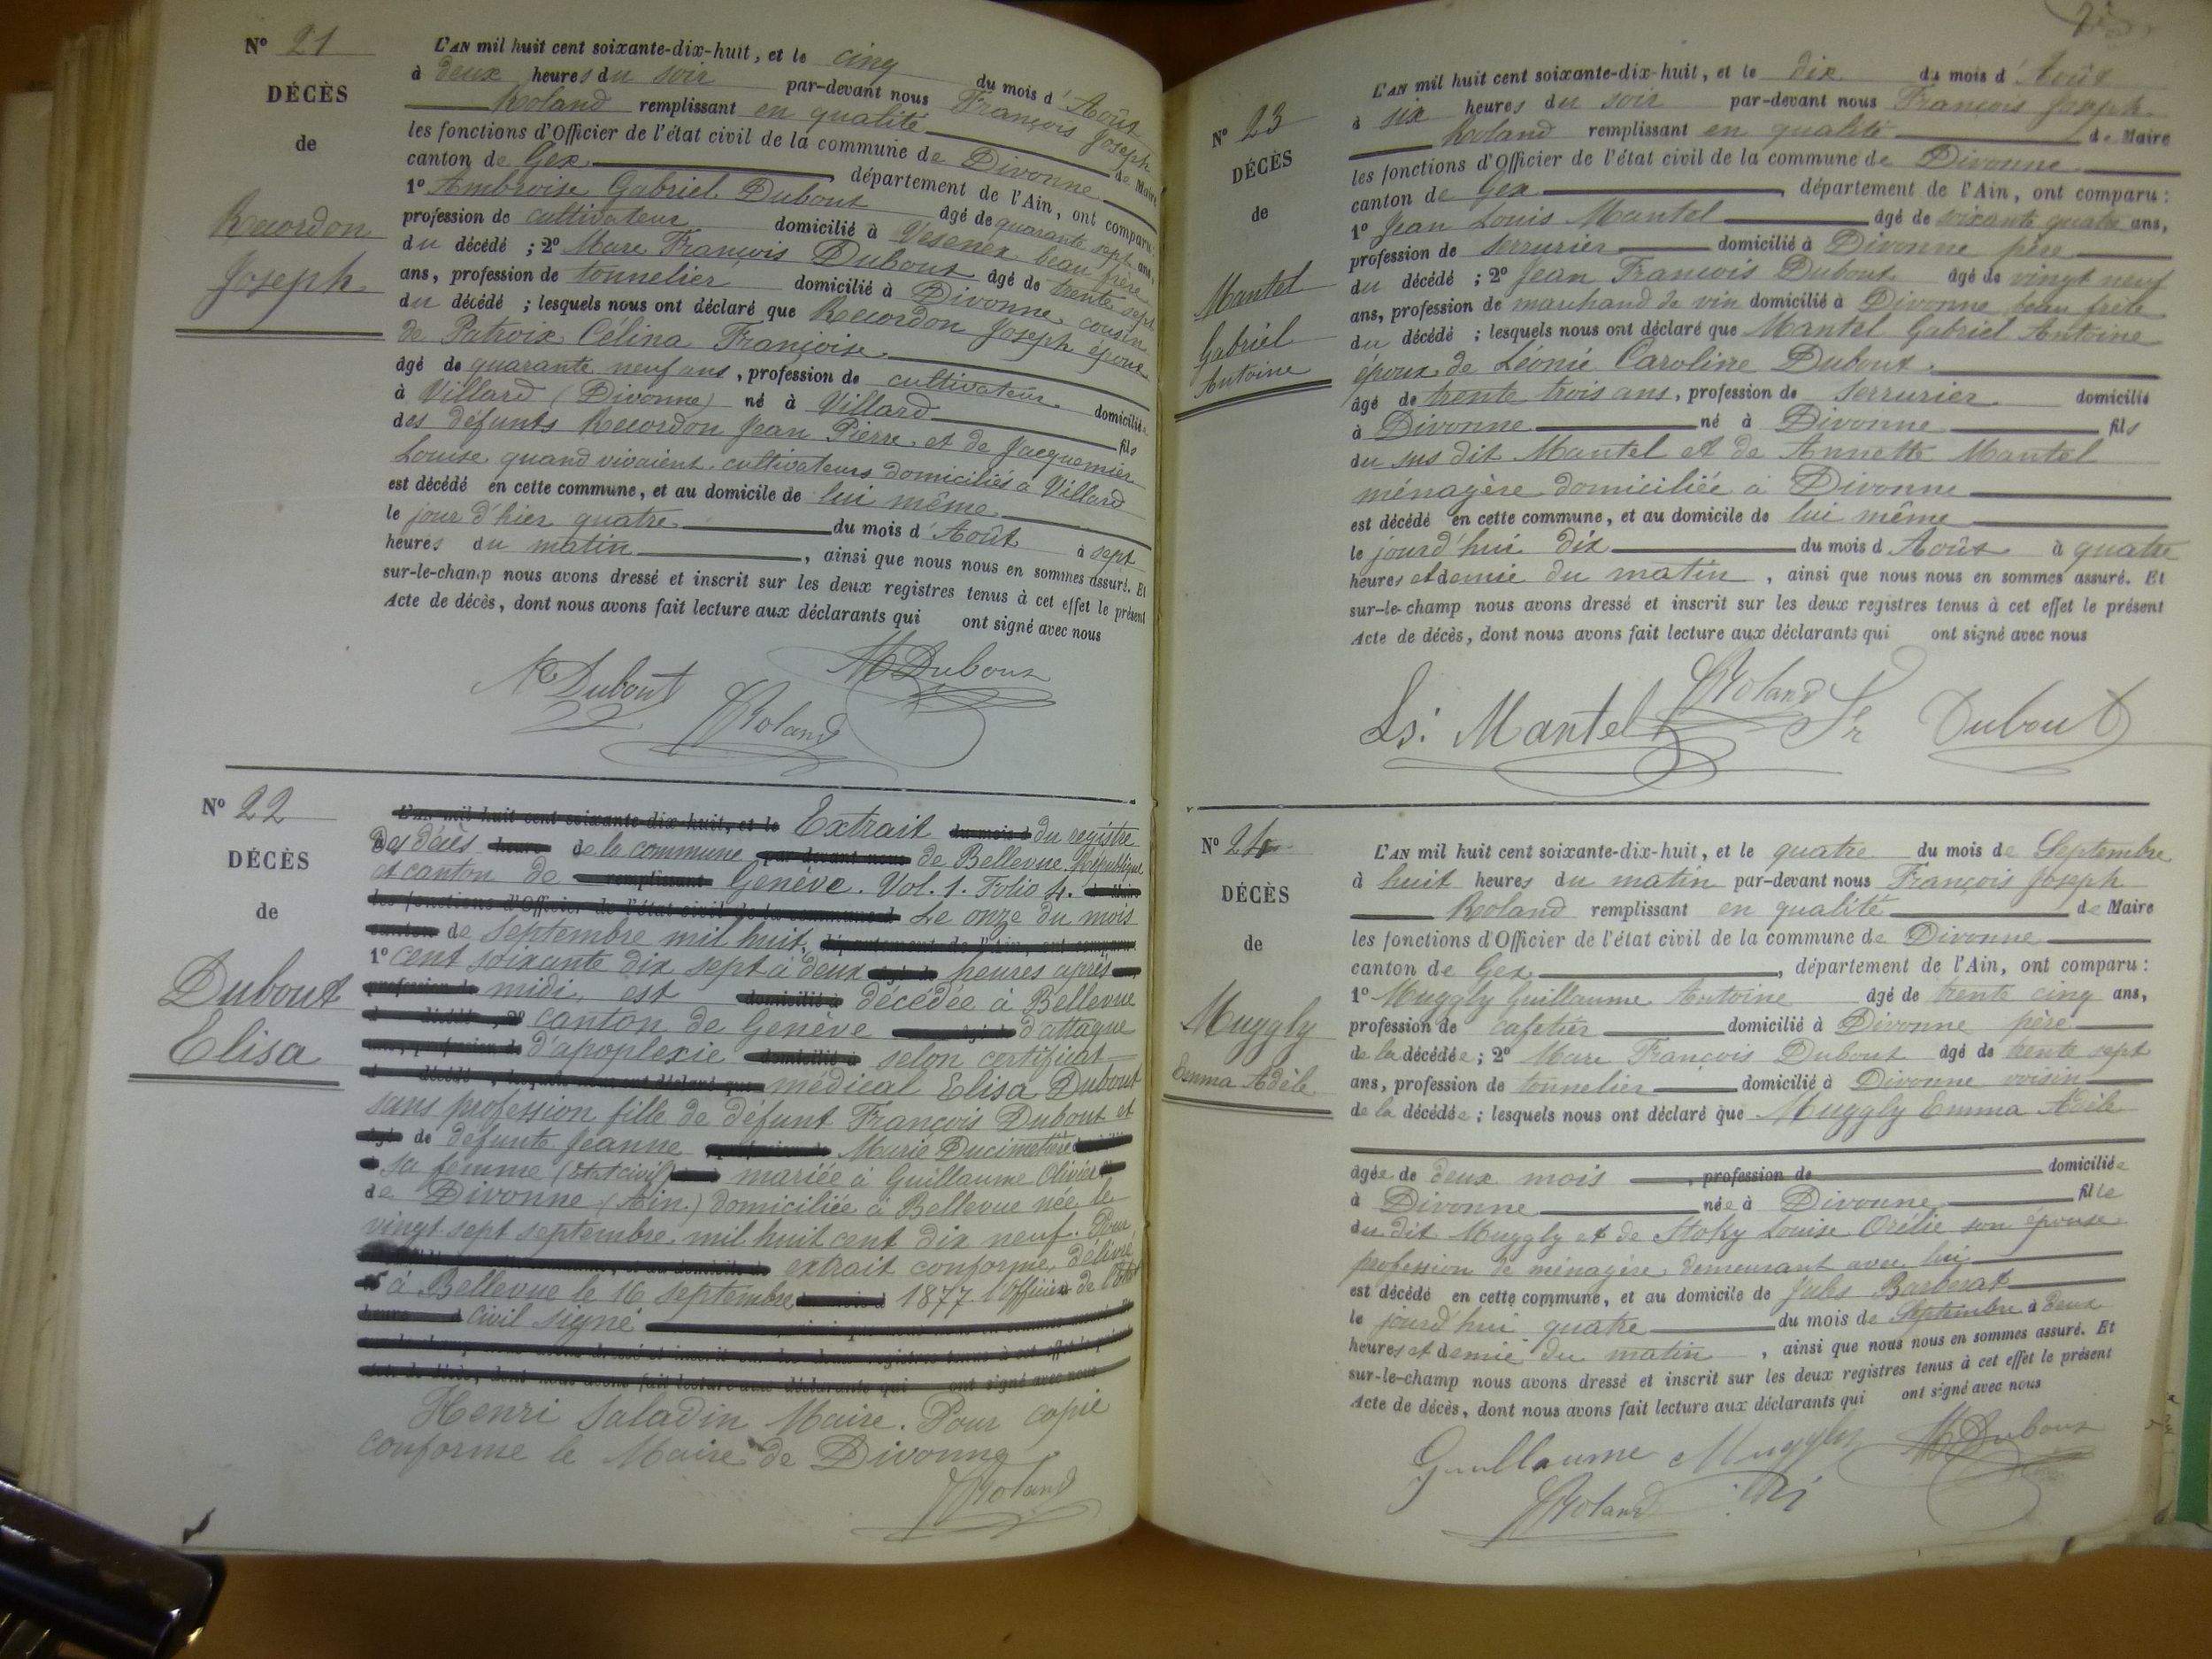 N° 21
DÉCÈS
de
Recordon
Joseph
L'AN mil huit cent soixante-dix-huit, et le cinq du mois d'Août
à deux heures du soir par-devant nous François Joseph
Roland remplissant en qualité de Maire
les fonctions d'Officier de l'état civil de la commune de Divonne
canton de Gex département de l'Ain, ont comparu:
1° Ambroise Gabriel Dubout âgé de quarante sept ans,
profession de cultivateur domicilié à Vesenex beau frère
du décédé; 2° Marc François Dubout âgé de trente sept
ans, profession de tonnelier domicilié à Divonne cousin
du décédé; lesquels nous ont déclaré que Recordon Joseph époux
de Patroix Célina Françoise
âgé de quarante neuf ans, profession de cultivateur domicilié
à Villard (Divonne) né à Villard fils
des défunts Recordon Jean Pierre et de Jacquemier
Louise quand vivaient cultivateurs domiciliés à Villard
est décédé en cette commune, et au domicile de lui même
le jour d'hier quatre du mois d'Août à sept
heures du matin, ainsi que nous nous en sommes assuré. Et
sur-le-champ nous avons dressé et inscrit sur les deux registres tenus à cet effet le présent
Acte de décès, dont nous avons fait lecture aux déclarants qui ont signé avec nous
Dubout MDubout
Roland
N° 22
DÉCÈS
de
Dubout
Elisa
L'AN mil huit cent soixante-dix-huit, et le Extrait du mois d du registre
des décès heure de la commune par devant nous de Bellevue République
et canton de remplissant Genève. Vol. 1. Folio 4. de Maire
les fonctions d'Officier de l'état civil de la commune d Le onze du mois
canton de septembre mil huit, département de l'Ain, ont comparu
1° cent soixante dix sept à deux âgé de heures après
profession de midi, est domicilié à décédée à Bellevue
d décédé; 2° canton de Genève âgé de d'attaque
ans, profession de d'apoplexie domicilié à selon certificat
d décédé, lesquels nous ont déclaré que médical Elisa Dubout
sans profession fille de défunt François Dubout et
âgé de défunte Jeanne profession de Marie Ducimetière
à sa femme (état civil) mariée à Guillaume Olivier
de Divonne (Ain) domiciliée à Bellevue née le
vingt sept septembre mil huit cent dix neuf. Pour
extrait conforme, délivré
à Bellevue le 16 septembre 1877. l'Officier de l'Etat
civil signé
sur-le-champ nous avons dressé et inscrit sur les deux registres tenus à cet effet le présent
Acte de décès, dont nous avons fait lecture aux déclarants qui ont signé avec nous
Henri Saladin Maire. Pour copie
conforme le Maire de Divonne
Roland
N° 23
DÉCÈS
de
Mantel
Gabriel
Antoine
L'AN mil huit cent soixante-dix-huit, et le dix du mois d'Août
à six heures du soir par-devant nous François Joseph
Roland remplissant en qualité de Maire
les fonctions d'Officier de l'état civil de la commune de Divonne
canton de Gex, département de l'Ain, ont comparu:
1° Jean Louis Mantel âgé de soixante quatre ans,
profession de serrurier domicilié à Divonne père
du décédé; 2° Jean François Dubout âgé de vingt neuf
ans, profession de marchand de vin domicilié à Divonne beau frère
du décédé; lesquels nous ont déclaré que Mantel Gabriel Antoine
époux de Léonie Caroline Dubout
âgé de trente trois ans, profession de serrurier domicilié
à Divonne né à Divonne fils
du sus dit Mantel et de Annette Mantel
ménagère domiciliée à Divonne
est décédé en cette commune, et au domicile de lui même
le jourd'hui dix du mois d Août à quatre
heures et demie du matin, ainsi que nous nous en sommes assuré. Et
sur-le-champ nous avons dressé et inscrit sur les deux registres tenus à cet effet le présent
Acte de décès, dont nous avons fait lecture aux déclarants qui ont signé avec nous
Roland
Ls: Mantel Fr Dubout
N° 24
DÉCÈS
de
Muggly
Emma Adèle
L'AN mil huit cent soixante-dix-huit, et le quatre du mois de Septembre
à huit heures du matin par-devant nous François Joseph
Roland remplissant en qualité de Maire
les fonctions d'Officier de l'état civil de la commune de Divonne
canton de Gex, département de l'Ain, ont comparu:
1° Muggly Guillaume Antoine âgé de trente cinq ans,
profession de cafetier domicilié à Divonne père
de la décédée; 2° Marc François Dubout âgé de trente sept
ans, profession de tonnelier domicilié à Divonne voisin
de la décédée; lesquels nous ont déclaré que Muggly Emma Adèle
âgée de deux mois, profession de domiciliée
à Divonne née à Divonne fille
du dit Muggly et de Stoky Louise Orélie son épouse
profession de ménagère demeurant avec lui
est décédé en cette commune, et au domicile de Jules Barberat
le jourd'hui quatre du mois de Septembre à deux
heures et demie du matin, ainsi que nous nous en sommes assuré. Et
sur-le-champ nous avons dressé et inscrit sur les deux registres tenus à cet effet le présent
Acte de décès, dont nous avons fait lecture aux déclarants qui ont signé avec nous
Guillaume Muggly MDubout
Roland